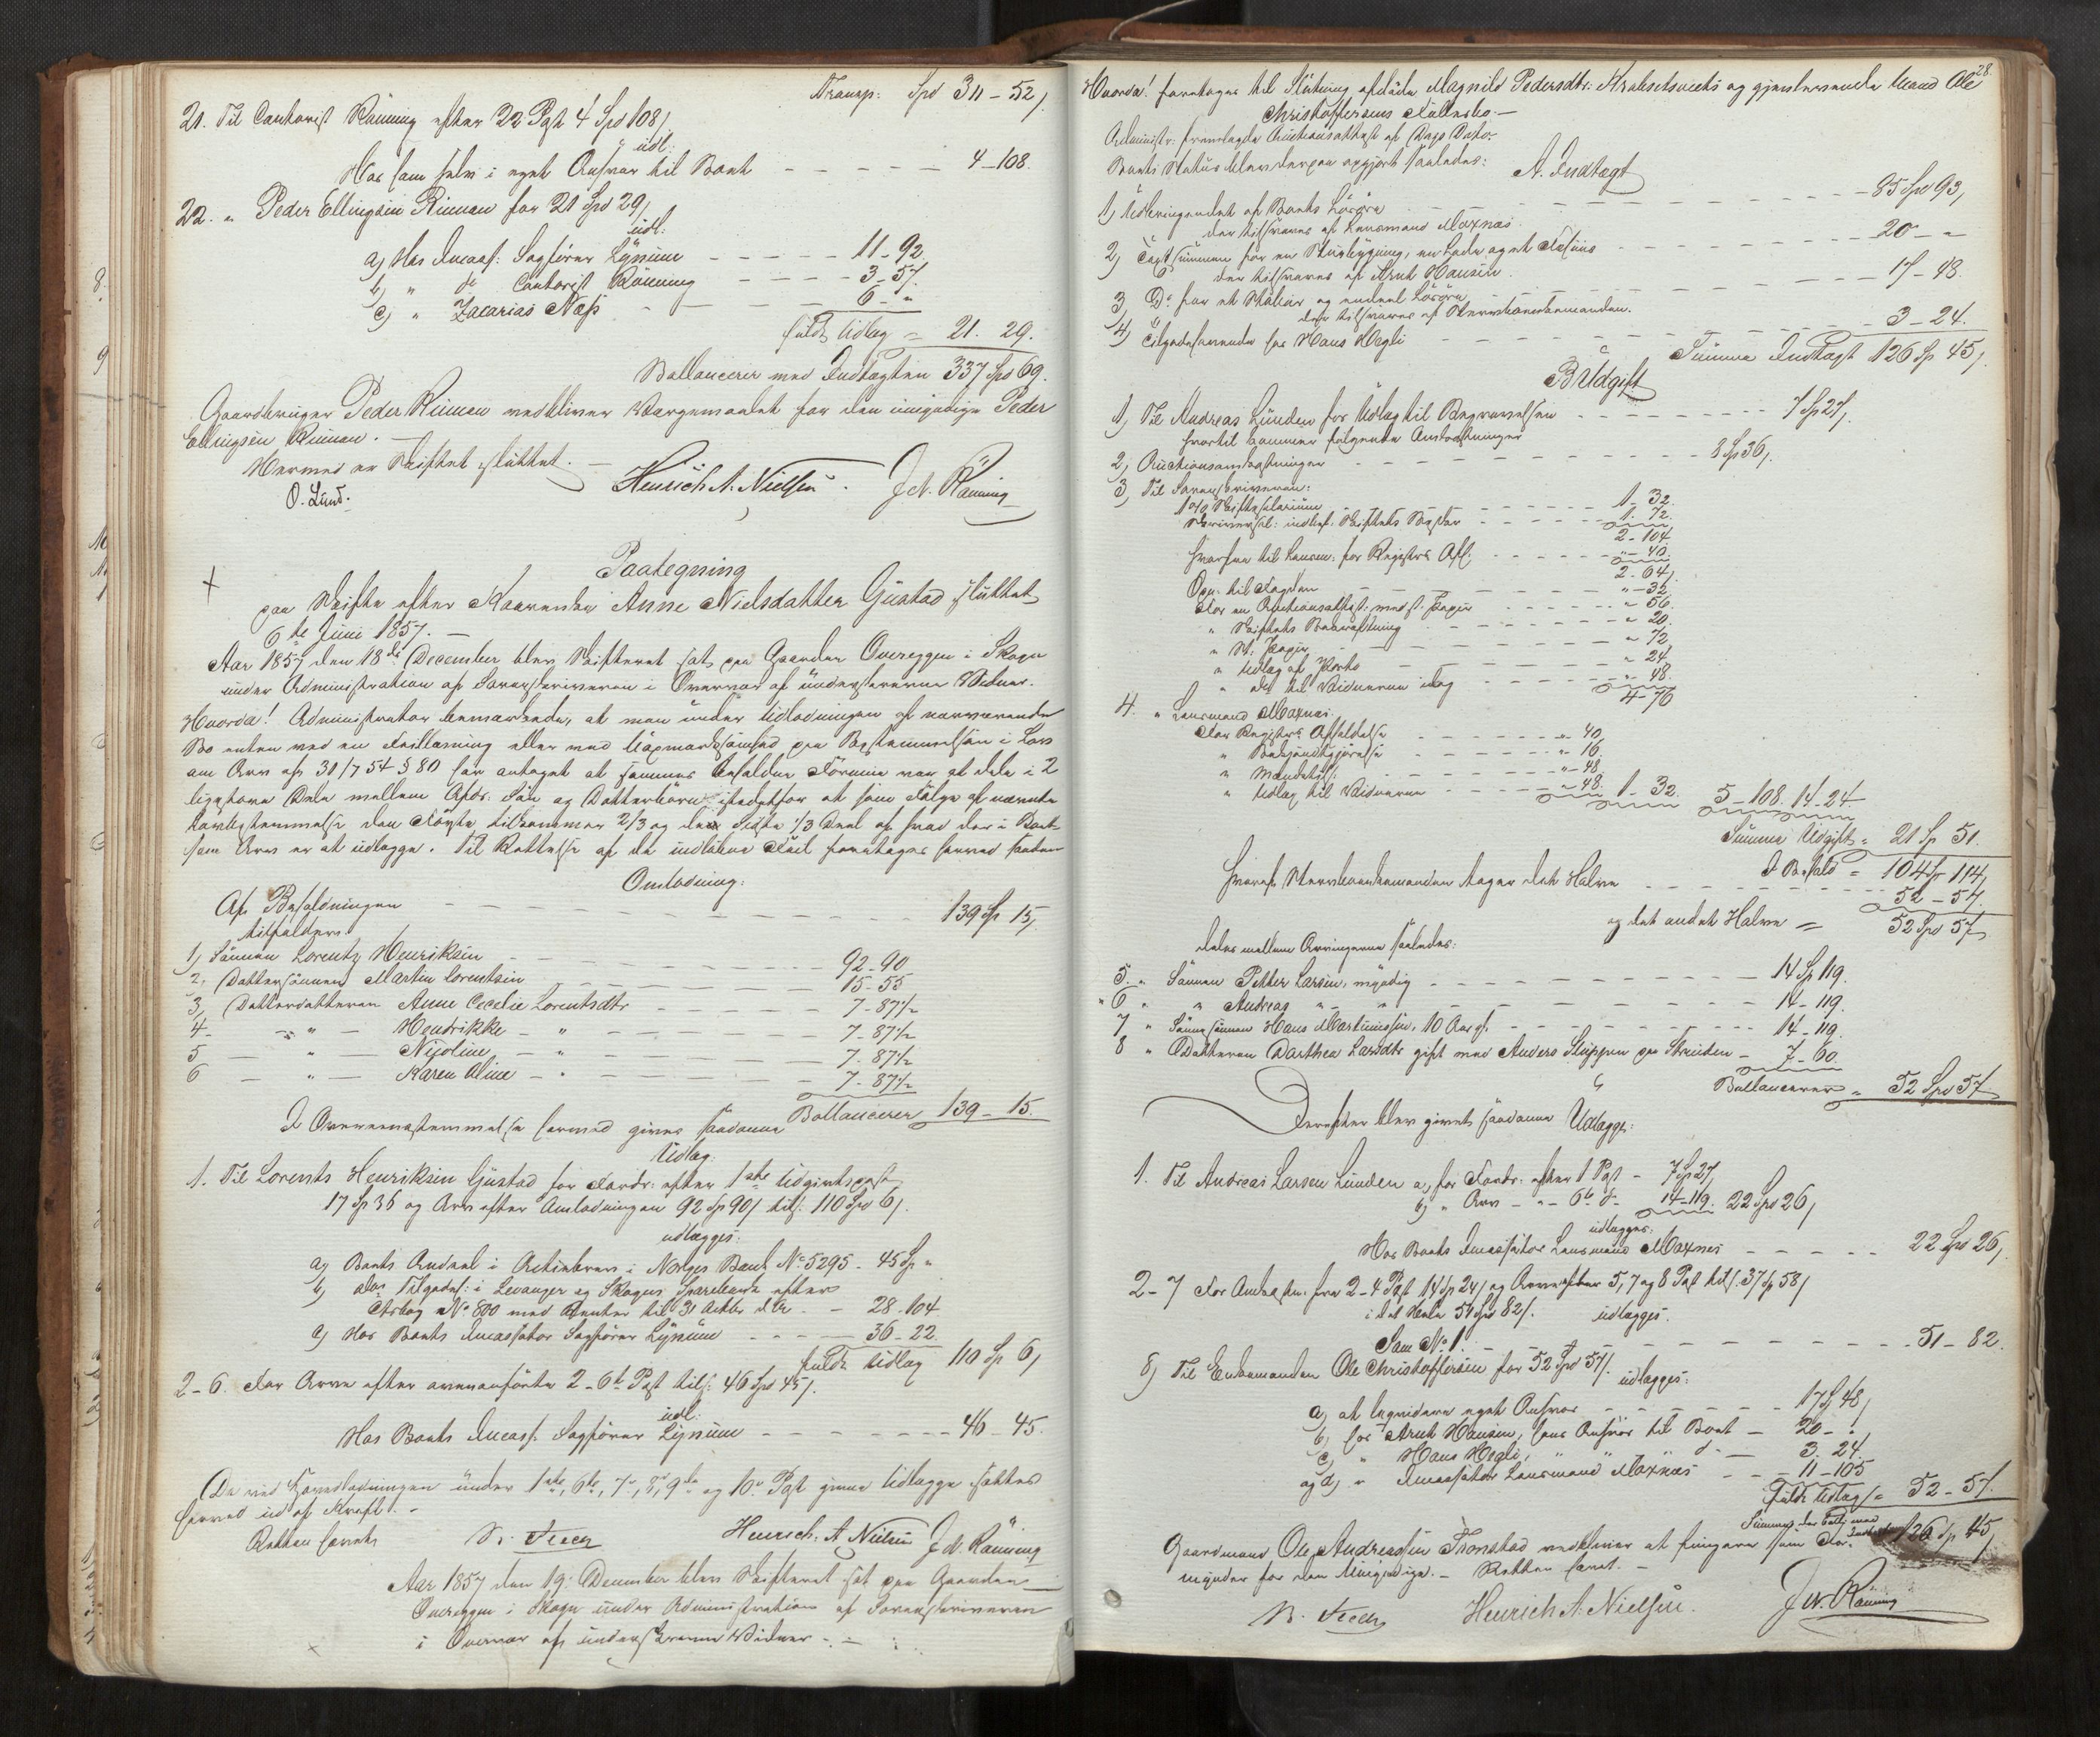 Transp: Spd 311 - 52/
21. Til Cantorist Rånning efter 22 Pgt 4 Spd 108/
udl:
Hos ham selv i eget Ansvar til Boet - - - - 4 - 108.
22. " Peder Ellingsen Rinnan for 21 Spd 29/
udl:
a) Hos Incass: Sagfører Lynum - - - - 11 - 92
b) " do Cantorist Rånning - - - 3 - 57.
c) " Zacarias Næs - - - 6 - "
fuldt Udlæg = 21. 29.
Ballancerer med Indtægten 337 Spd 69.
Gaardbruger Peder Rinnan vedbliver Værgemaalet for den umyndige Peder
Ellingsen Rinnan. -
Hermed er Skiftet sluttet. -
O. Lund. Henrich A. Nielsen. J. N. Rånning
Paategning
paa Skifte efter Kaarenke Anne Nielsdatter Gustad sluttet
6te Juni 1857. -
Aar 1857 den 18de December blev Skifteret sat paa Gaarden Overeggen i Skogn
under Administration af Sorenskriveren i Overvær af underskrevne Vidner.
Hvorda! Administrator bemærkede, at man under Udlodningen af nærværende
Bo enten ved en Feillæsning eller ved Uopmærksomhed paa Bestemmelsen i Lov
om Arv af 31/7 54 § 80 har antaget at sammes Formue var at dele i 2
ligestore Dele mellem Afdr. Søn og Datterbørn istedetfor at som Følge af nævnte
Lovbestemmelse den Første tilkommer 2/3 og de Sidste 1/3 Deel af hvad der i Boet
som Arv er at udlægge. Til Rettelse af de indløbne Feil foretages herved saadan
Omlodning:
Af Beholdningen - - - - 139 Sp 15/
tilfalder
1) Sønnen Lorentz Henriksen - - - - 92 - 90
2, Dattersønnen Martin Lorentsen - - - - 15 - 55
3) Datterdatteren Anne Cecelie Lorentsdtr - - - 7 - 87½
4 - " - Hendrikke - " - - - 7 - 87½
5 - " - Nicoline - " - - - 7 - 87½
6 - " - Karen Oline - " - - - 7 - 87½
Ballancerer 139 - 15.
I Overeensstemmelse hermed gives saadanne
Udlæg.
1. Til Lorents Henriksen Gustad for Fordr: efter 1ste Udgiftspost
17 Sp 36 og Arv efter Omlodningen 92 Sp 90/ tils: 110 Spd 6/.
udlægges:
a) Boets Andeel i Actiebrev i Norges Bank No 5295 - 45 Sp "
b) dos Tilgodeh: i Levanger og Skogns Sparebank efter
No 800 med Renter til 31 - - 28 - 104
c) Hos Boets Incassator Sagfører Lynum - - - 36 - 22.
fuldt Udlæg 110 Sp 6/
2 - 6. For Arv efter ovenanførte 2 - 6te Post tils: 46 Spd 45/.
udl:
Hos Boets Incass. Sagfører Lynum - - - - 46 - 45.
De ved Hovedlodningen under 1ste, 6te, 7e, 8e, 9de og 10e Post givne Udlægge sættes
herved ud af Kraft. -
Retten hævet Henrich. A Nielsen J. N. Rånning
Aar 1857 den 19: December blev Skifteret sat paa Gaarden
Overeggen i Skogn under Administration af Sorenskriveren
i Overvær af underskrevne Vidner. -
28.
Hvorda! foretages til Slutning afdøde Magnild Pedersdtr: og gjenlevende Mand Ole
Christoffersens Fællesbo. -
Administr: fremlagde Auctionsattest af Dags Dato -
Boets Status blev derpaa opgjort saaledes:
A. Indtægt
1) Udbringendet af Boets Løsøre - - - 85 Spd 93/
der tilsvares af Lensmand Moxnæs.
2) for en , en Lade, og et Fæhuus - - - 20 - "
der tilsvares af Arnt Hansen.
3, Do for et og endeel Løsøre - - - 17 - 48.
der tilsvares af Stervboenkemanden.
4) Tilgodehavende hos Hans Hegli - - - 3 - 24.
Summa Indtægt 126 Sp 45/
B Udgift
1) Til Andreas Lunden for Udlæg til Begravelsen - - - 7 Sp 27/.
hvortil kommer følgende Omkostninger
2) Auctionsomkostninger - - - 8 Sp 36/.
3) Til Sorenskriveren:
1 % Skiftesalarium - - - 1 - 32.
Skriversal: indbef: Skiftets - - - 1 - 72.
2 - 104
hvorfra til Lensm: for Registrs Afh. - - - " - 40.
2 - 64/
Opn. til Fogden - - - " - 32
For en Auctionsattest: med st. Papir - - - " 56.
" Skiftets - - - " 20.
" St: Papir - - - " 72
" Udlæg af Porto - - - " 24
" do til Vidnerne idag - - - " 48.
4 - 76
4. " Lensmand Moxnæs.
For Registrs Afholdelse - - - " 40,
" Bekjendtgjørelse - - - " 16
" - - - " 48
" Udlæg til Vidnerne - - - " 48. 1 - 32. 5 - 108. 14 - 24
Summa Udgift = 21 Sp 51.
I Behold = 104 Sp 114/
hvoraf Stervboenkemanden tager det Halve - - - 52 - 57.
og det andet Halve = 52 Spd 57/
deles mellem Arvingerne saaledes:
5. " Sønnen Petter Larsen, myndig - - - 14 Sp 119.
" 6 " " Andreas " - " - - - 14 - 119.
7 " Sønnesønnen Hans Martinussen, 10 Aar gl. - - - 14 - 119
8 " Datteren Dorthea Larsdtr gift med Anders Sluppen paa Strinden - 7 - 60.
Ballancerer = 52 Spd 57
Derefter blev givet saadanne Udlægge:
1. Til Andreas Larsen Lunden a, for Fordr: efter 1 Pgt - 7 Sp 27/
b) " Arv - " - 6te do - 14 - 119. 22 Spd 26/
udlægges:
Hos Boets Incassator Lensmand Moxnæs - - - - 22 Spd 26/
2 - 7 For Omkostn. fra 2 - 4 Pgt 14 Sp 24/ og Arv efter 5, 7 og 8 Pgt tils: 37 Sp 58/
i det Hele 51 Spd 82/. udlægges.
Som No 1. - - - - 51 - 82.
8) Til Enkemanden Ole Christoffersen for 52 Spd 57/. udlægges:
a) at liqvidere eget Ansvar - - - 17 Sp 48/
b) hos Arnt Hansen, hans Ansvar til Boet - 20 - "
c) " Hans Hegli, " " do - 3. 24.
og d) " Incassator Lensmand Moxnæs - - - 11 - 105
Fuldt Udlæg = 52 - 57.
Summa der ball: med Indtægten 126 Sp 45/
Gaardmand Ole Andreassen Tronstad vedbliver at fungere som For-
mynder for den Umyndige. - Retten hævet. -
Henrich A. Nielsen. J. N. Rånning